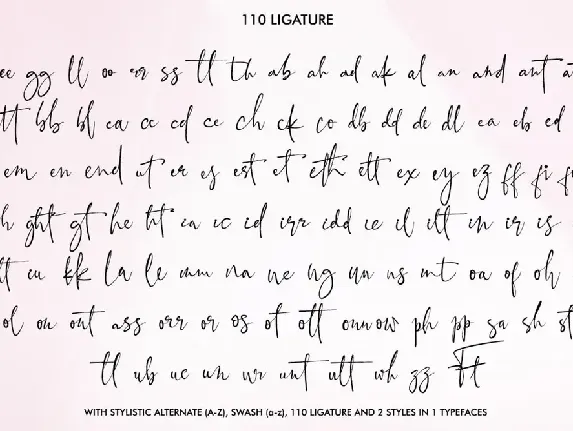 110 LIGATURE
ee gg ll oo or ss tt th ab ah ad ak al an and ant
tt bb bl ca cc cd ce ch ck co db dd de dl ea eb ed
em en end et er es est et eth ett ex ey ez ff fi
ght gt he ht ia ic id irr idd ie il itt in ir is
tt iu kk la le mm na ne ng nn ns nt oa of oh
ol on ont ass orr or os ot ott ounow ph pp sa sh st
tt ub uc un ur unt utt wh zz Ft
WITH STYLISTIC ALTERNATE (A-Z), SWASH (a-z), 110 LIGATURE AND 2 STYLES IN 1 TYPEFACES